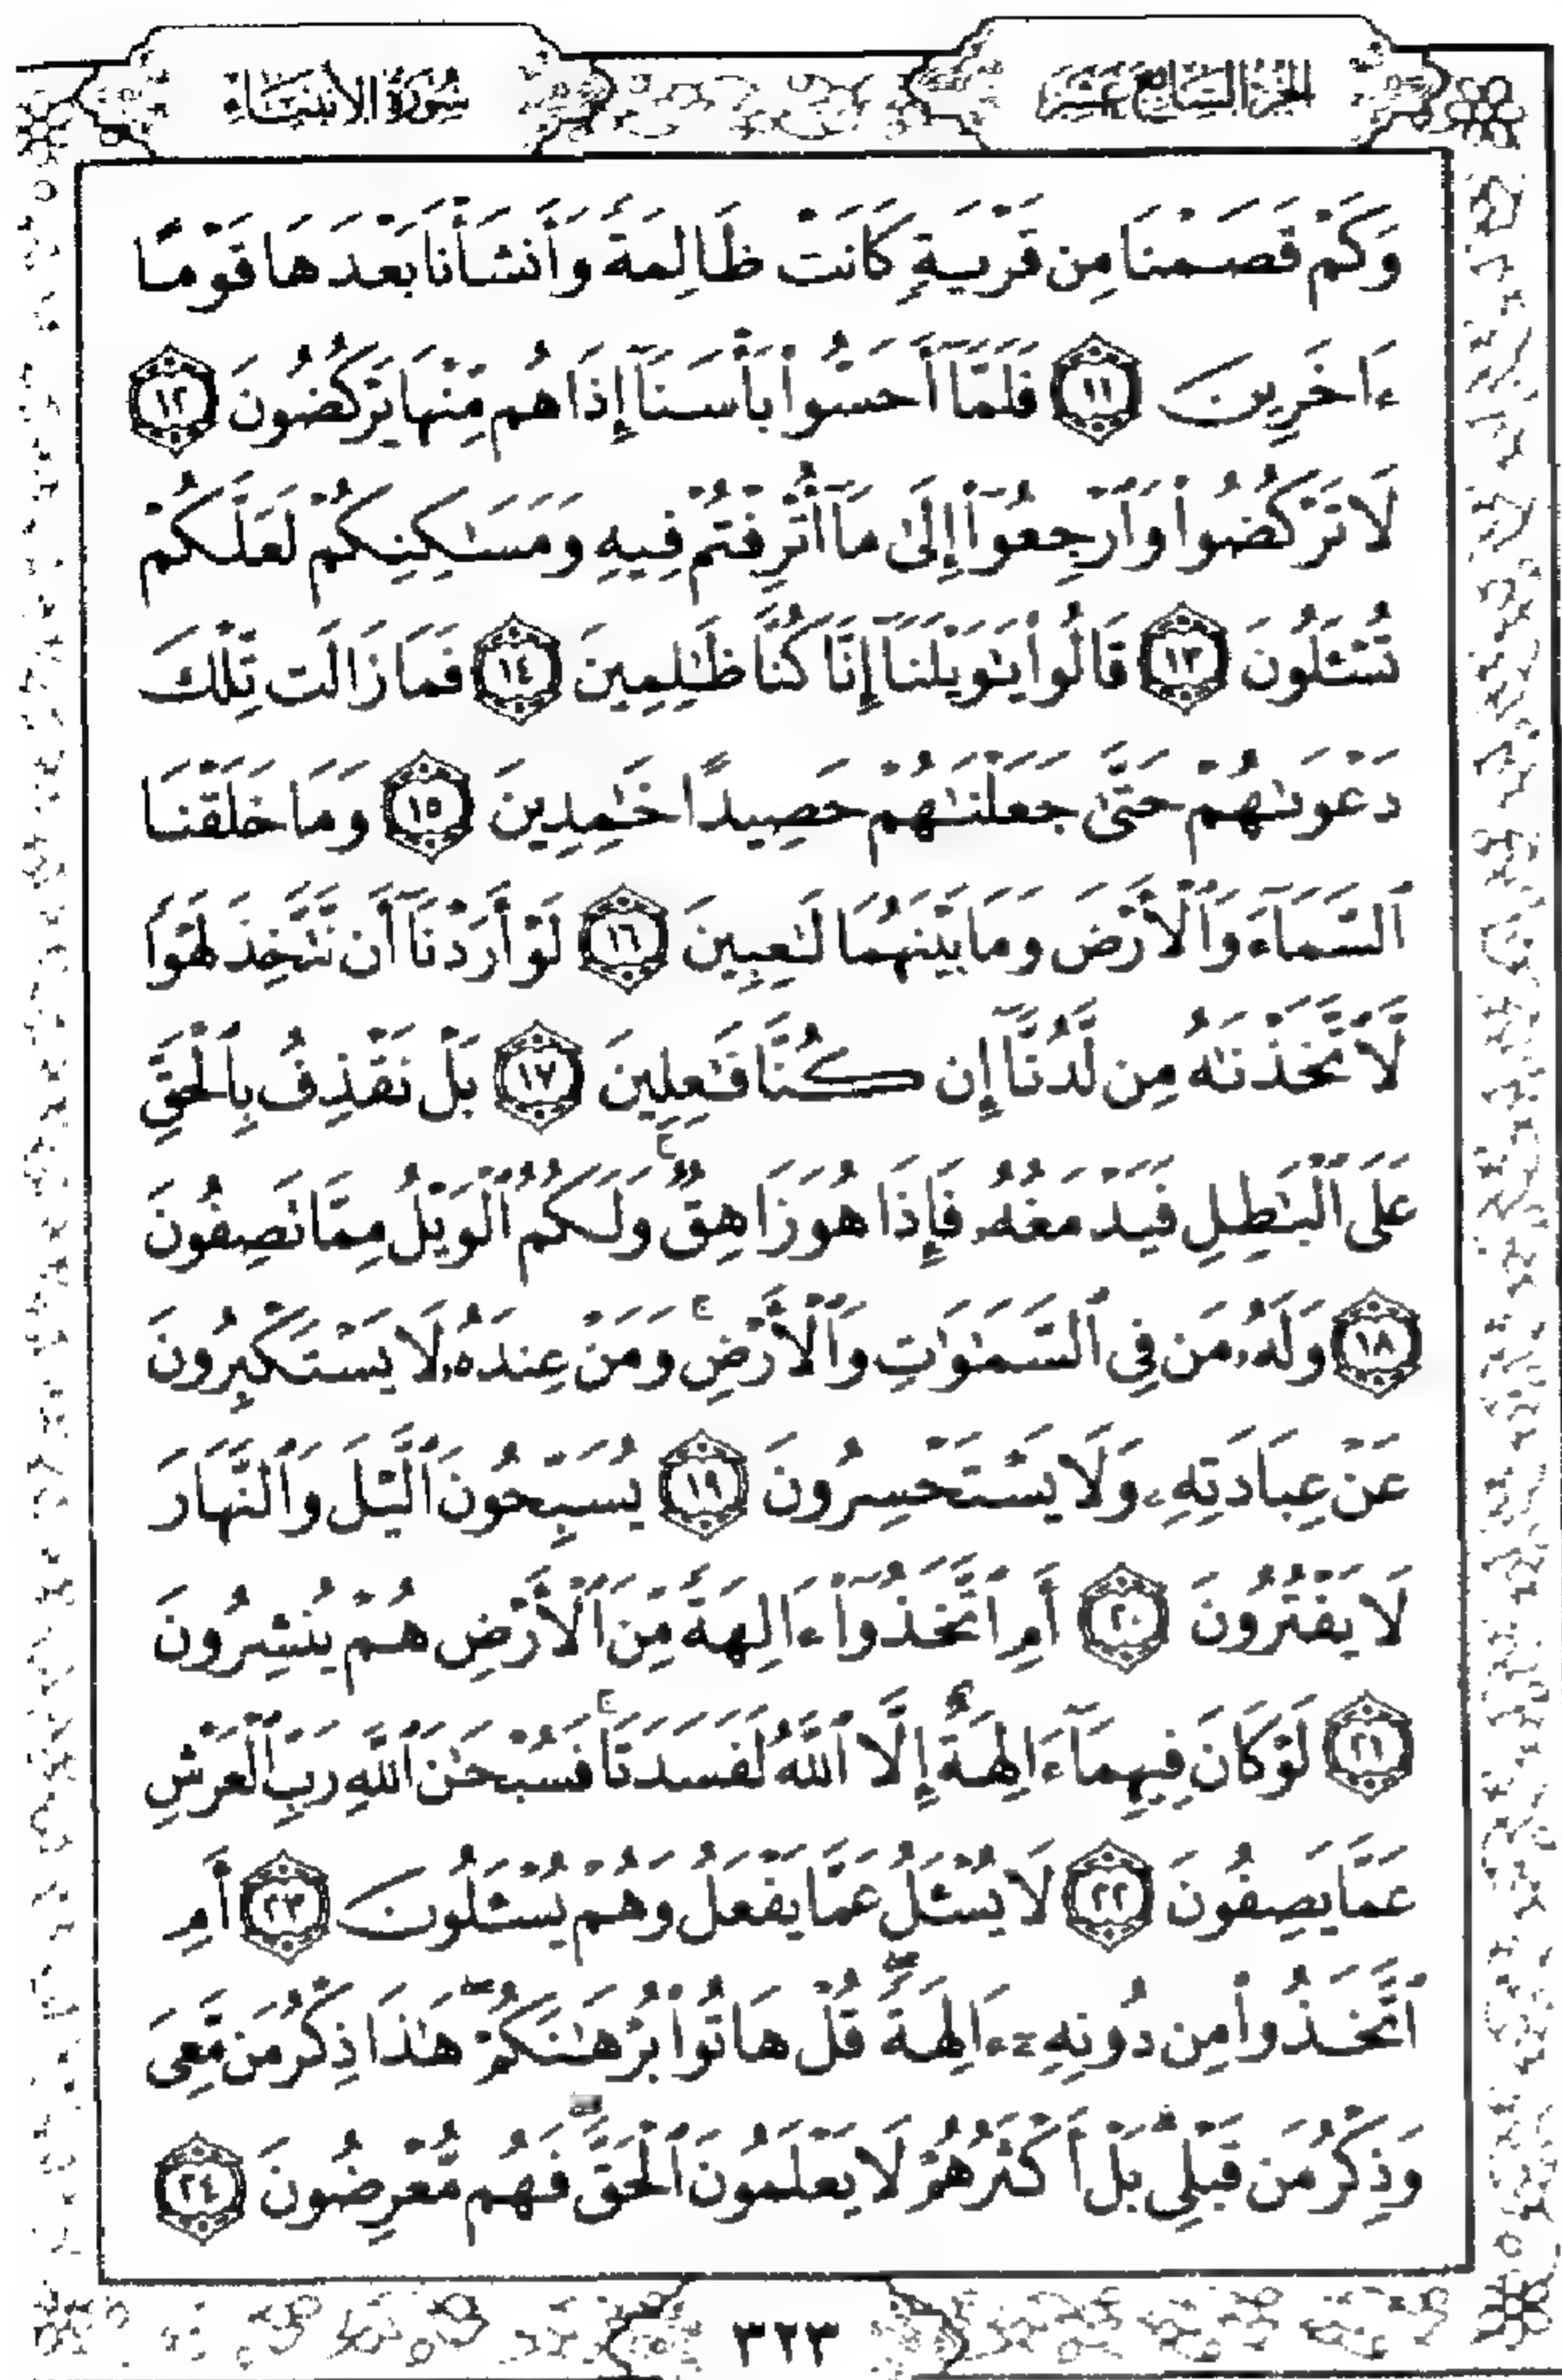 الجزء السابع عشر
سورة الأنبياء
وَكَمْ قَصَمْنَا مِن قَرْيَةٍ كَانَتْ ظَالِمَةً وَأَنشَأْنَا بَعْدَهَا قَوْمًا
ءَاخَرِينَ ١١ فَلَمَّآ أَحَسُّوا۟ بَأْسَنَآ إِذَا هُم مِّنْهَا يَرْكُضُونَ ١٢
لَا تَرْكُضُوا۟ وَٱرْجِعُوٓا۟ إِلَىٰ مَآ أُتْرِفْتُمْ فِيهِ وَمَسَـٰكِنِكُمْ لَعَلَّكُمْ
تُسْـَٔلُونَ ١٣ قَالُوا۟ يَـٰوَيْلَنَآ إِنَّا كُنَّا ظَـٰلِمِينَ ١٤ فَمَا زَالَت تِّلْكَ
دَعْوَىٰهُمْ حَتَّىٰ جَعَلْنَـٰهُمْ حَصِيدًا خَـٰمِدِينَ ١٥ وَمَا خَلَقْنَا
ٱلسَّمَآءَ وَٱلْأَرْضَ وَمَا بَيْنَهُمَا لَـٰعِبِينَ ١٦ لَوْ أَرَدْنَآ أَن نَّتَّخِذَ لَهْوًا
لَّٱتَّخَذْنَـٰهُ مِن لَّدُنَّآ إِن كُنَّا فَـٰعِلِينَ ١٧ بَلْ نَقْذِفُ بِٱلْحَقِّ
عَلَى ٱلْبَـٰطِلِ فَيَدْمَغُهُۥ فَإِذَا هُوَ زَاهِقٌ ۚ وَلَكُمُ ٱلْوَيْلُ مِمَّا تَصِفُونَ
١٨ وَلَهُۥ مَن فِى ٱلسَّمَـٰوَٰتِ وَٱلْأَرْضِ ۚ وَمَنْ عِندَهُۥ لَا يَسْتَكْبِرُونَ
عَنْ عِبَادَتِهِۦ وَلَا يَسْتَحْسِرُونَ ١٩ يُسَبِّحُونَ ٱلَّيْلَ وَٱلنَّهَارَ
لَا يَفْتُرُونَ ٢٠ أَمِ ٱتَّخَذُوٓا۟ ءَالِهَةً مِّنَ ٱلْأَرْضِ هُمْ يُنشِرُونَ
٢١ لَوْ كَانَ فِيهِمَآ ءَالِهَةٌ إِلَّا ٱللَّهُ لَفَسَدَتَا ۚ فَسُبْحَـٰنَ ٱللَّهِ رَبِّ ٱلْعَرْشِ
عَمَّا يَصِفُونَ ٢٢ لَا يُسْـَٔلُ عَمَّا يَفْعَلُ وَهُمْ يُسْـَٔلُونَ ٢٣ أَمِ
ٱتَّخَذُوا۟ مِن دُونِهِۦٓ ءَالِهَةً ۖ قُلْ هَاتُوا۟ بُرْهَـٰنَكُمْ ۖ هَـٰذَا ذِكْرُ مَن مَّعِىَ
وَذِكْرُ مَن قَبْلِى ۗ بَلْ أَكْثَرُهُمْ لَا يَعْلَمُونَ ٱلْحَقَّ ۖ فَهُم مُّعْرِضُونَ ٢٤
٣٢٣